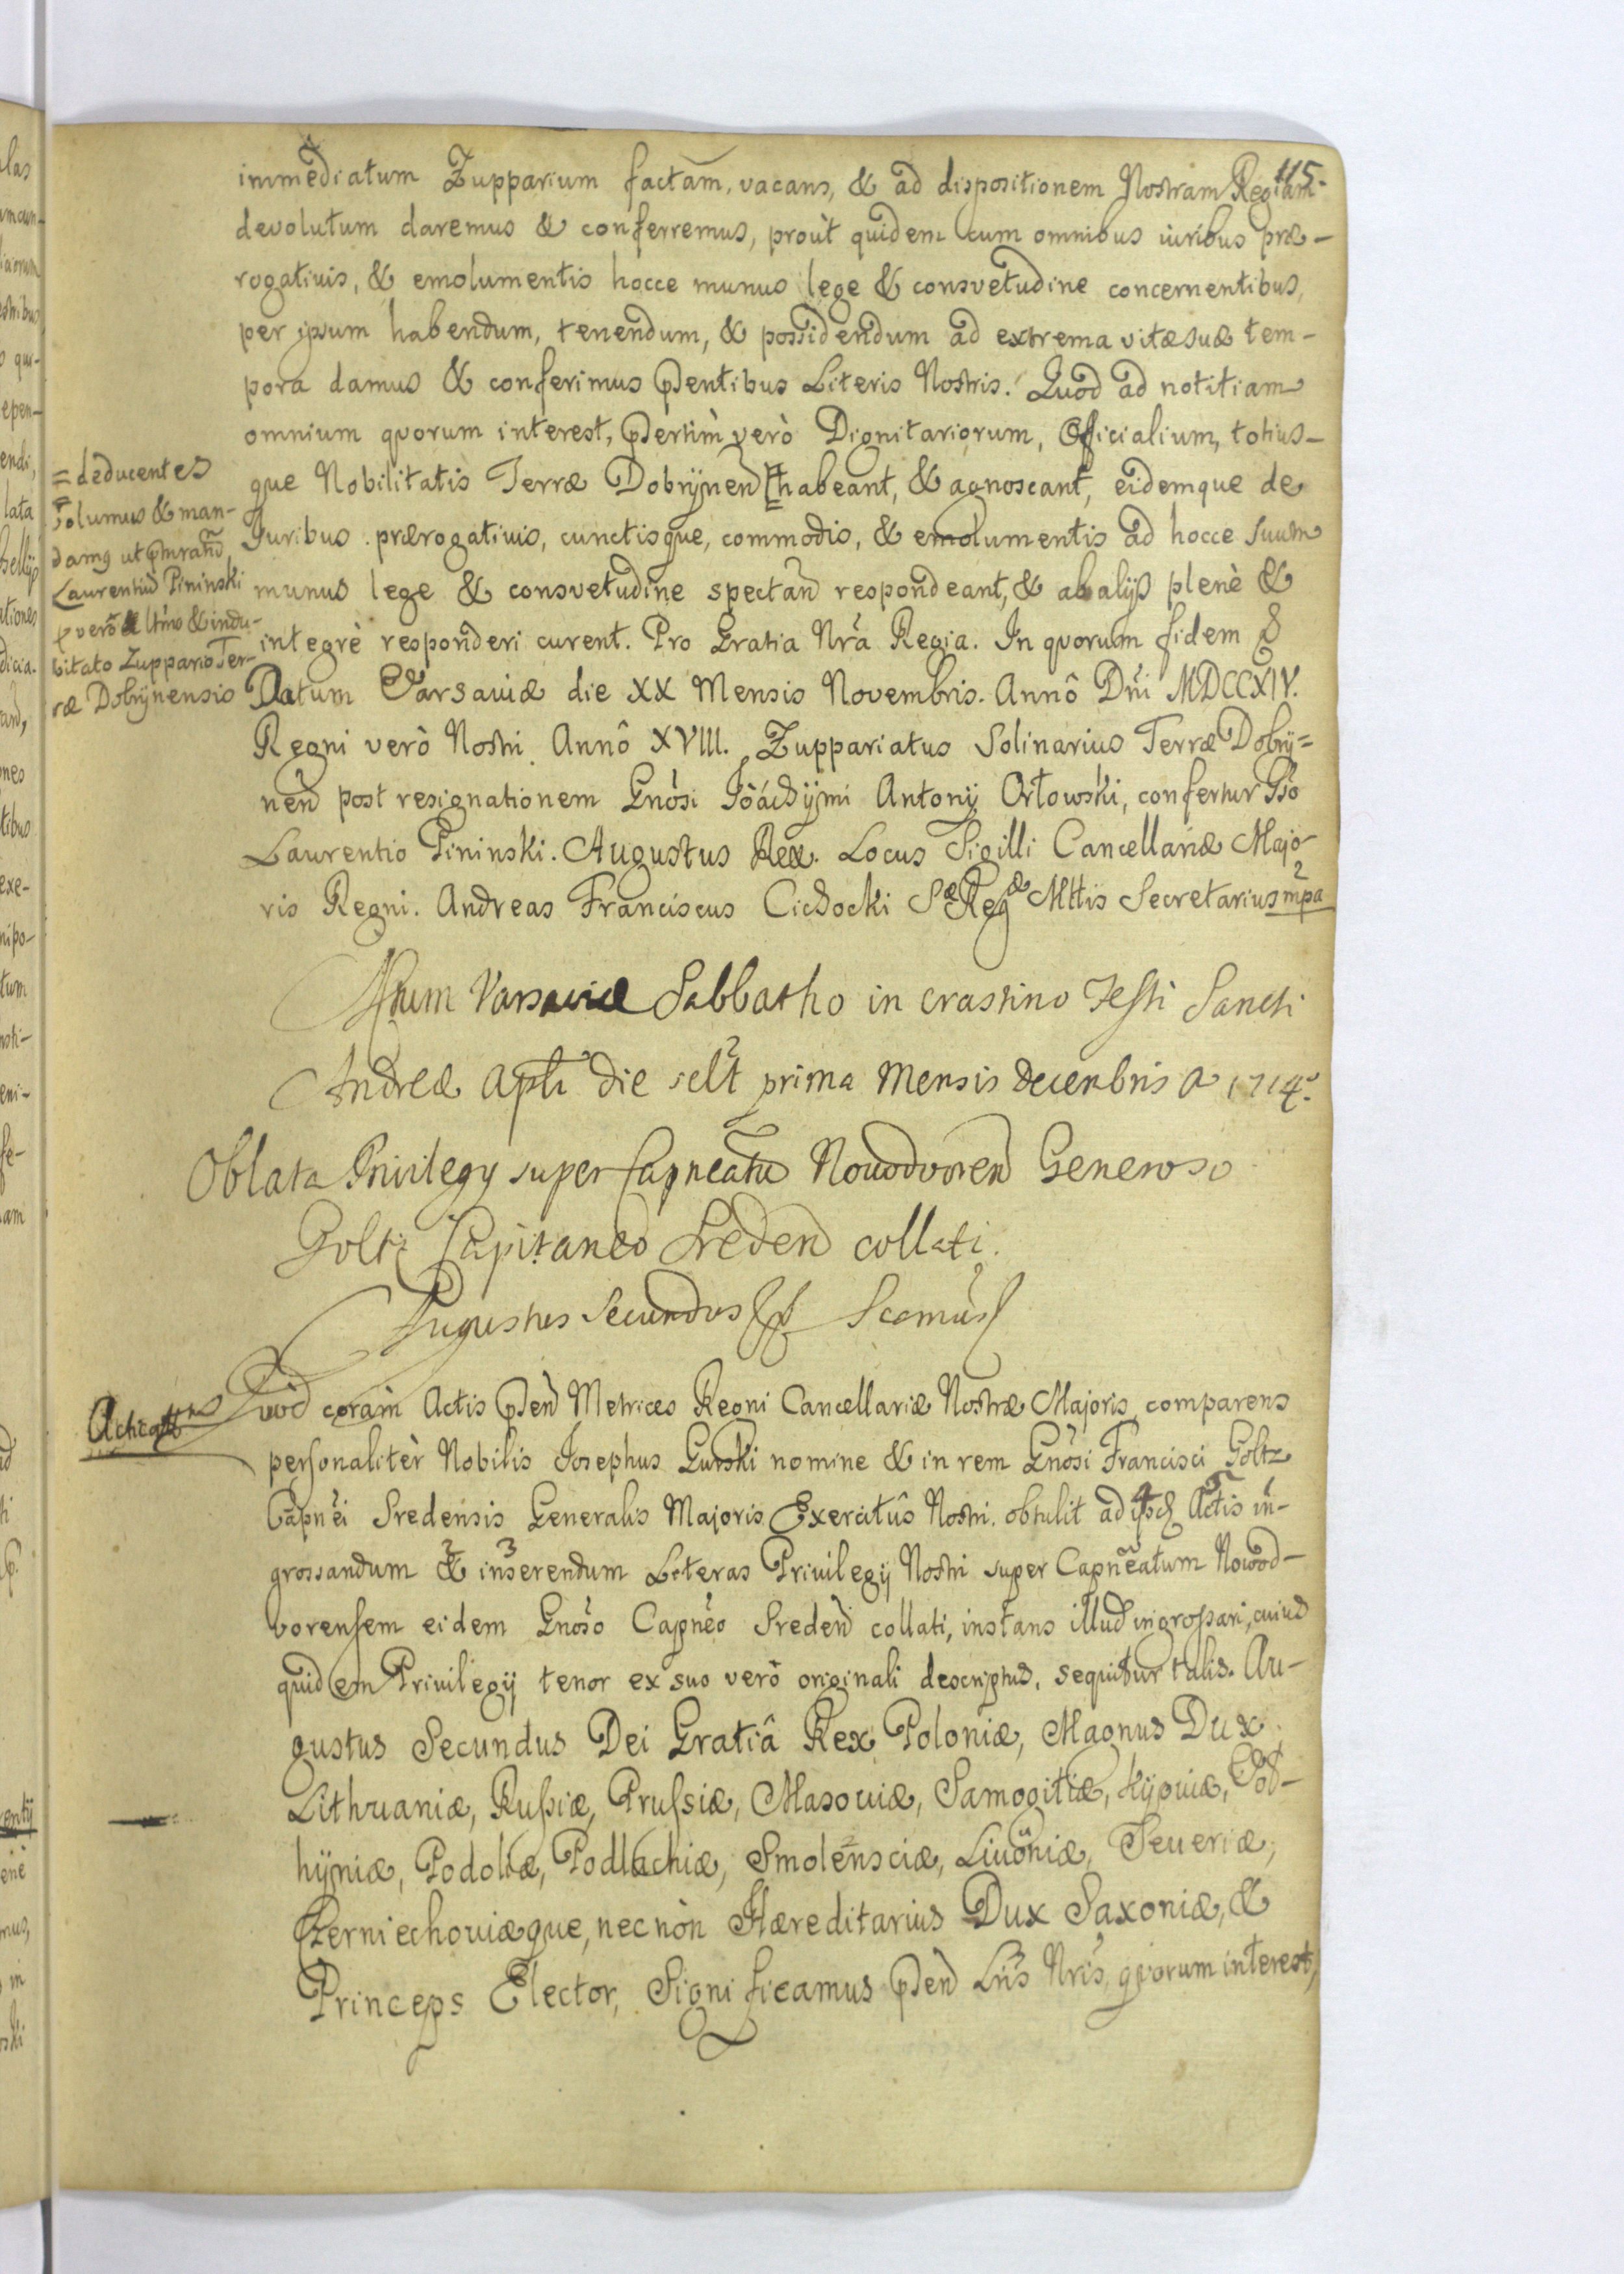 115.
immediatum Zupparium factam, vacans, & ad dispositionem Nostram Regiam
devolutum daremus & conferremus, proùt quidem cum omnibus iuribus præ-
rogativis, & emolumentis hocce munus lege & consvetudine concernentibus,
per ipsum habendum, tenendum, & possidendum ad extrema vitæ suæ tem-
pora damus & conferimus pñtibus Literis Nostris. Quod ad notitiam
omnium quorum interest, psertim verò Dignitariorum, Officialium, totius-
que Nobilitatis Terræ Dobrÿnen habeant, & agnoscant, eidemque de
Juribus prærogativis, cunctisque, commodis, & emolumentis ad hocce suum
munus lege & consvetudine spectan respondeant, & ab alijs plenè &
integrè responderi curent. Pro Gratia Nrâ Regia. In quorum fidem
Datum Varsaviæ die XX Mensis Novembris. Annô Dni MDCCXIV.
Regni verò Nostri Annô XVIII. Zuppariatus Solinarius Terræ Dobrÿ=
nen post resignationem Gnosi Joáchÿmi Antonij Orłowski, confertur Gso
Laurentio Pininski. Augustus Rex. Locus Sigilli Cancellariæ Majo-
ris Regni. Andreas Franciscus Cichocki Sæ Regæ Mttis Secretarius mpa
= deducentes
volumus & man-
damq ut
Laurentiũ Pininski
& indu-
bitato Zuppario Ter-
ræ Dobrÿnensis
Actum Varsaviæ Sabbatho in crastino Festi Sancti
Andreæ Apli die sclt prima Mensis decembris A 1714.
Oblata Privilegy super Capneatu Nowodvoren Generoso
Goltz Capitaneo Sreden collati.
Augustus Secundus
Quod coràm Actis pñ Metrices Regni Cancellariæ Nostræ Majoris comparens
personalitèr Nobilis Josephus Gurski nomine & in rem Gnosi Francisci Goltz
Capnei Sredensis Generalis Majoris Exercitûs Nostri. obtulit ad Actis in-
grossandum & inserendum Literas Privilegij Nostri super Capneatum Nowod-
vorensem eidem Gnoso Capneo Sreden collati, instans illud ingrossari, cuius
quidem Privilegij tenor ex suo verò originali descriptus, sequitur talis. Au-
gustus Secundus Dei Gratiâ Rex Poloniæ, Magnus Dux
Lithvaniæ, Russiæ, Prussiæ, Masoviæ, Samogitiæ, Kÿoviæ, Vol-
hÿniæ, Podoliæ, Podlachiæ, Smolensciæ, Livoniæ, Severiæ,
Czerniechoviæque, necnòn Hæreditarius Dux Saxoniæ, &
Princeps Elector, Significamus pñ Lris Nris, quorum interest,